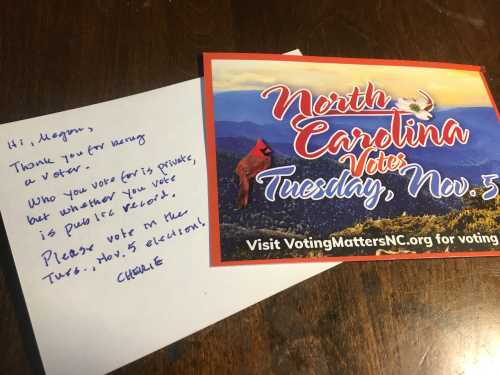 Hi, Megan,
Thank you for being
a voter.
Who you vote for is private,
but whether you vote
is public record.
Please vote in the
Tues., Nov. 5 election!
CHERIE
North
Carolina
Votes
Tuesday, Nov. 5
Visit VotingMattersNC.org for voting